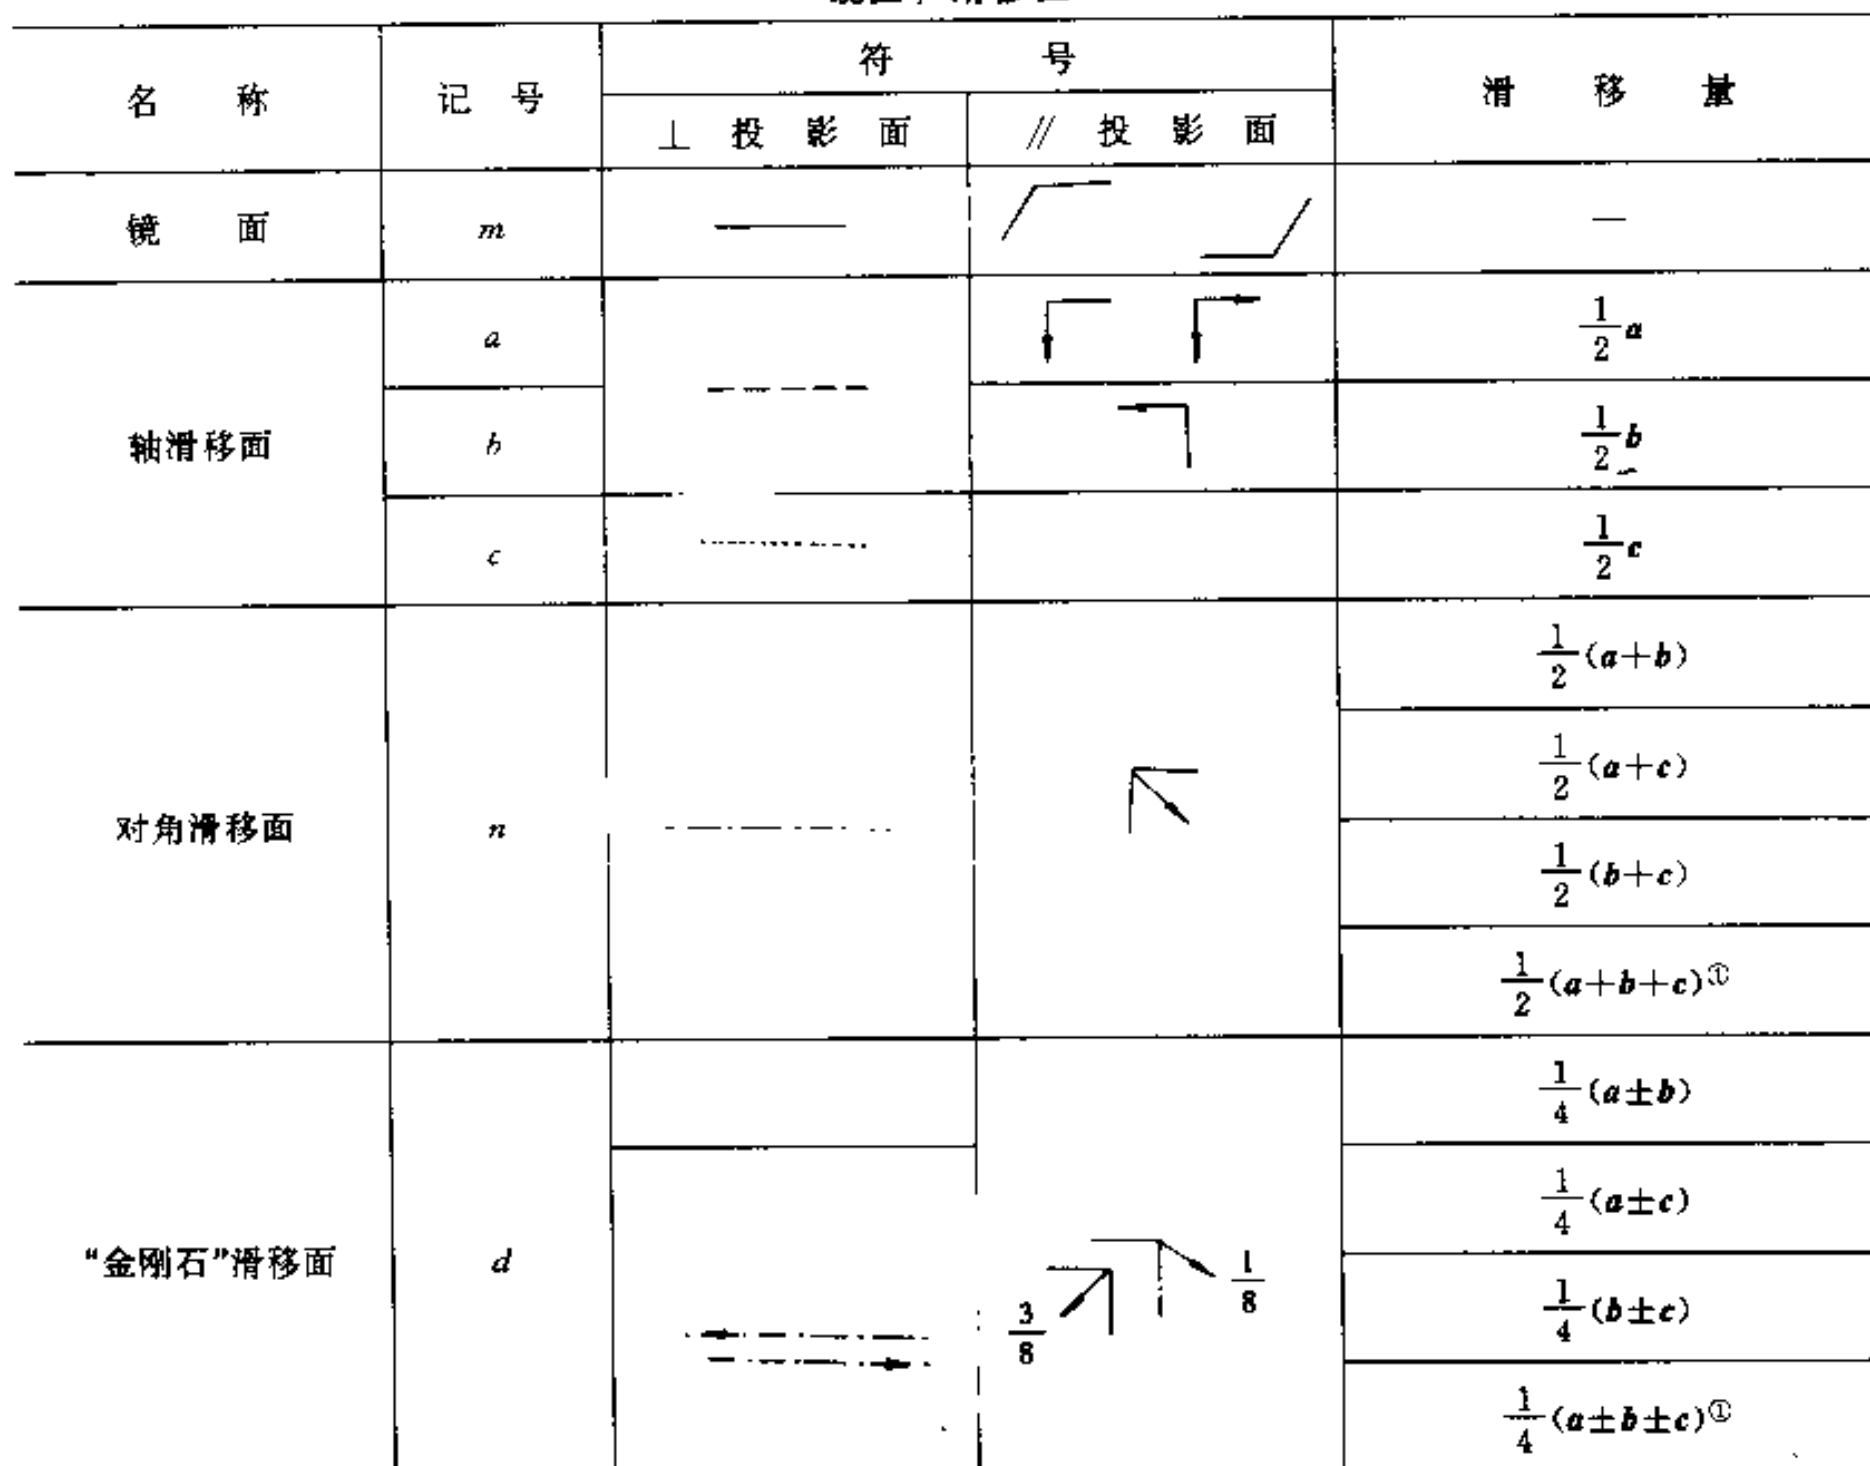 名 称
记 号
符 号
⊥ 投 影 面
// 投 影 面
滑 移 量
镜 面
m
—
轴滑移面
a
1/2 a
b
1/2 b
c
1/2 c
对角滑移面
n
1/2 (a+b)
1/2 (a+c)
1/2 (b+c)
1/2 (a+b+c)①
“金刚石”滑移面
d
3/8
1/8
1/4 (a±b)
1/4 (a±c)
1/4 (b±c)
1/4 (a±b±c)①